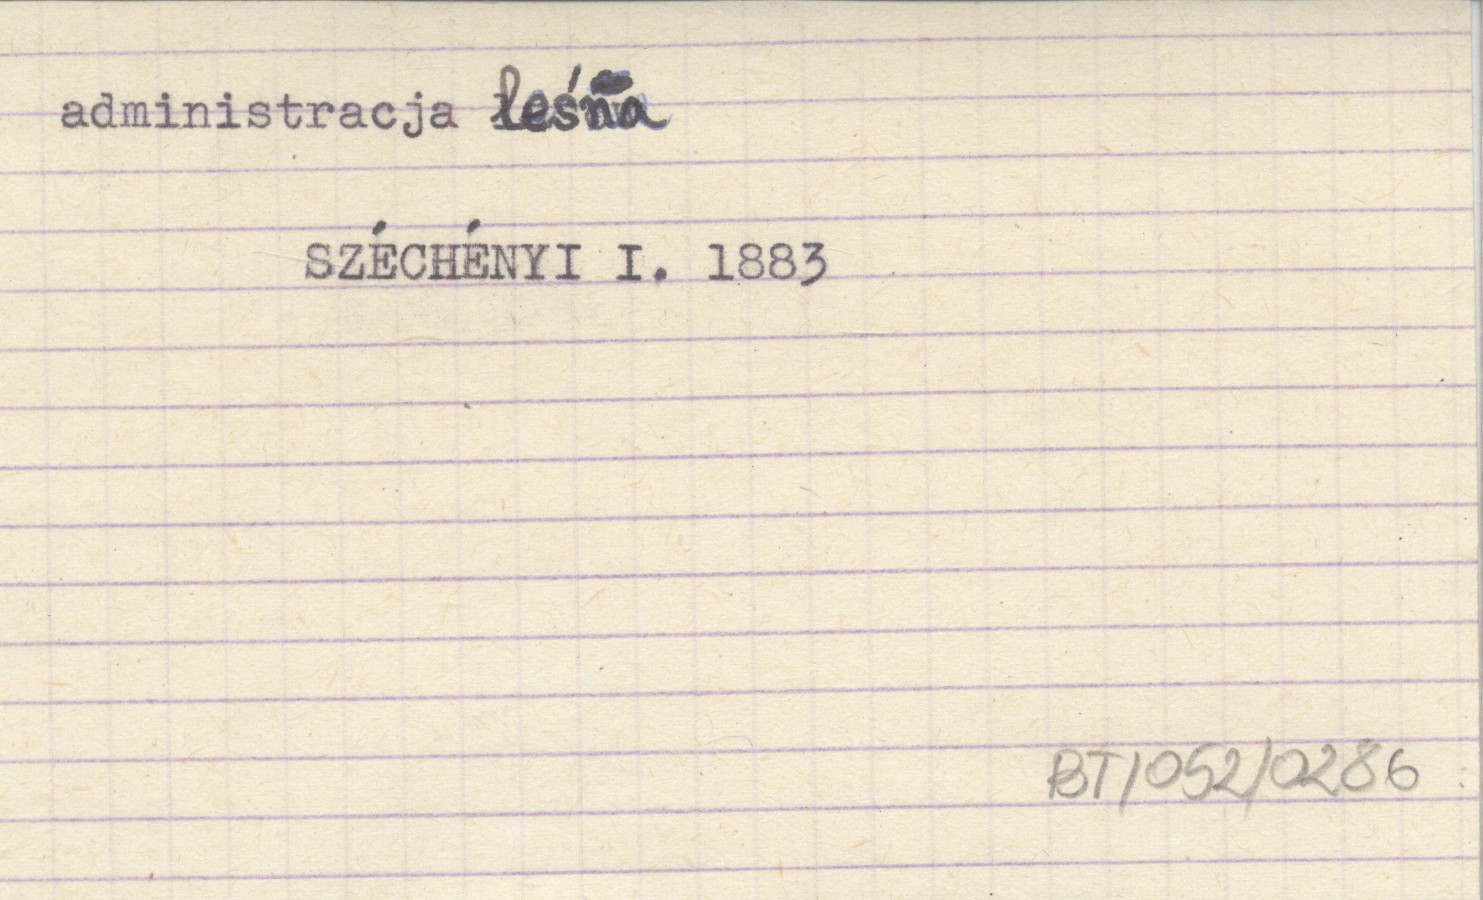 administracja leśna
SZÉCHÉNYI I. 1883
BT/052/0286